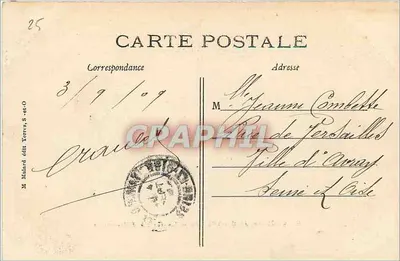 25
CARTE POSTALE
Correspondance
Adresse
3/9/09
M lle Jeanne Combette
Rue de Versailles
Ville d'Avray
Seine et Oise
CPAPHIL
M Mulard édit Yerres, S.-et-O